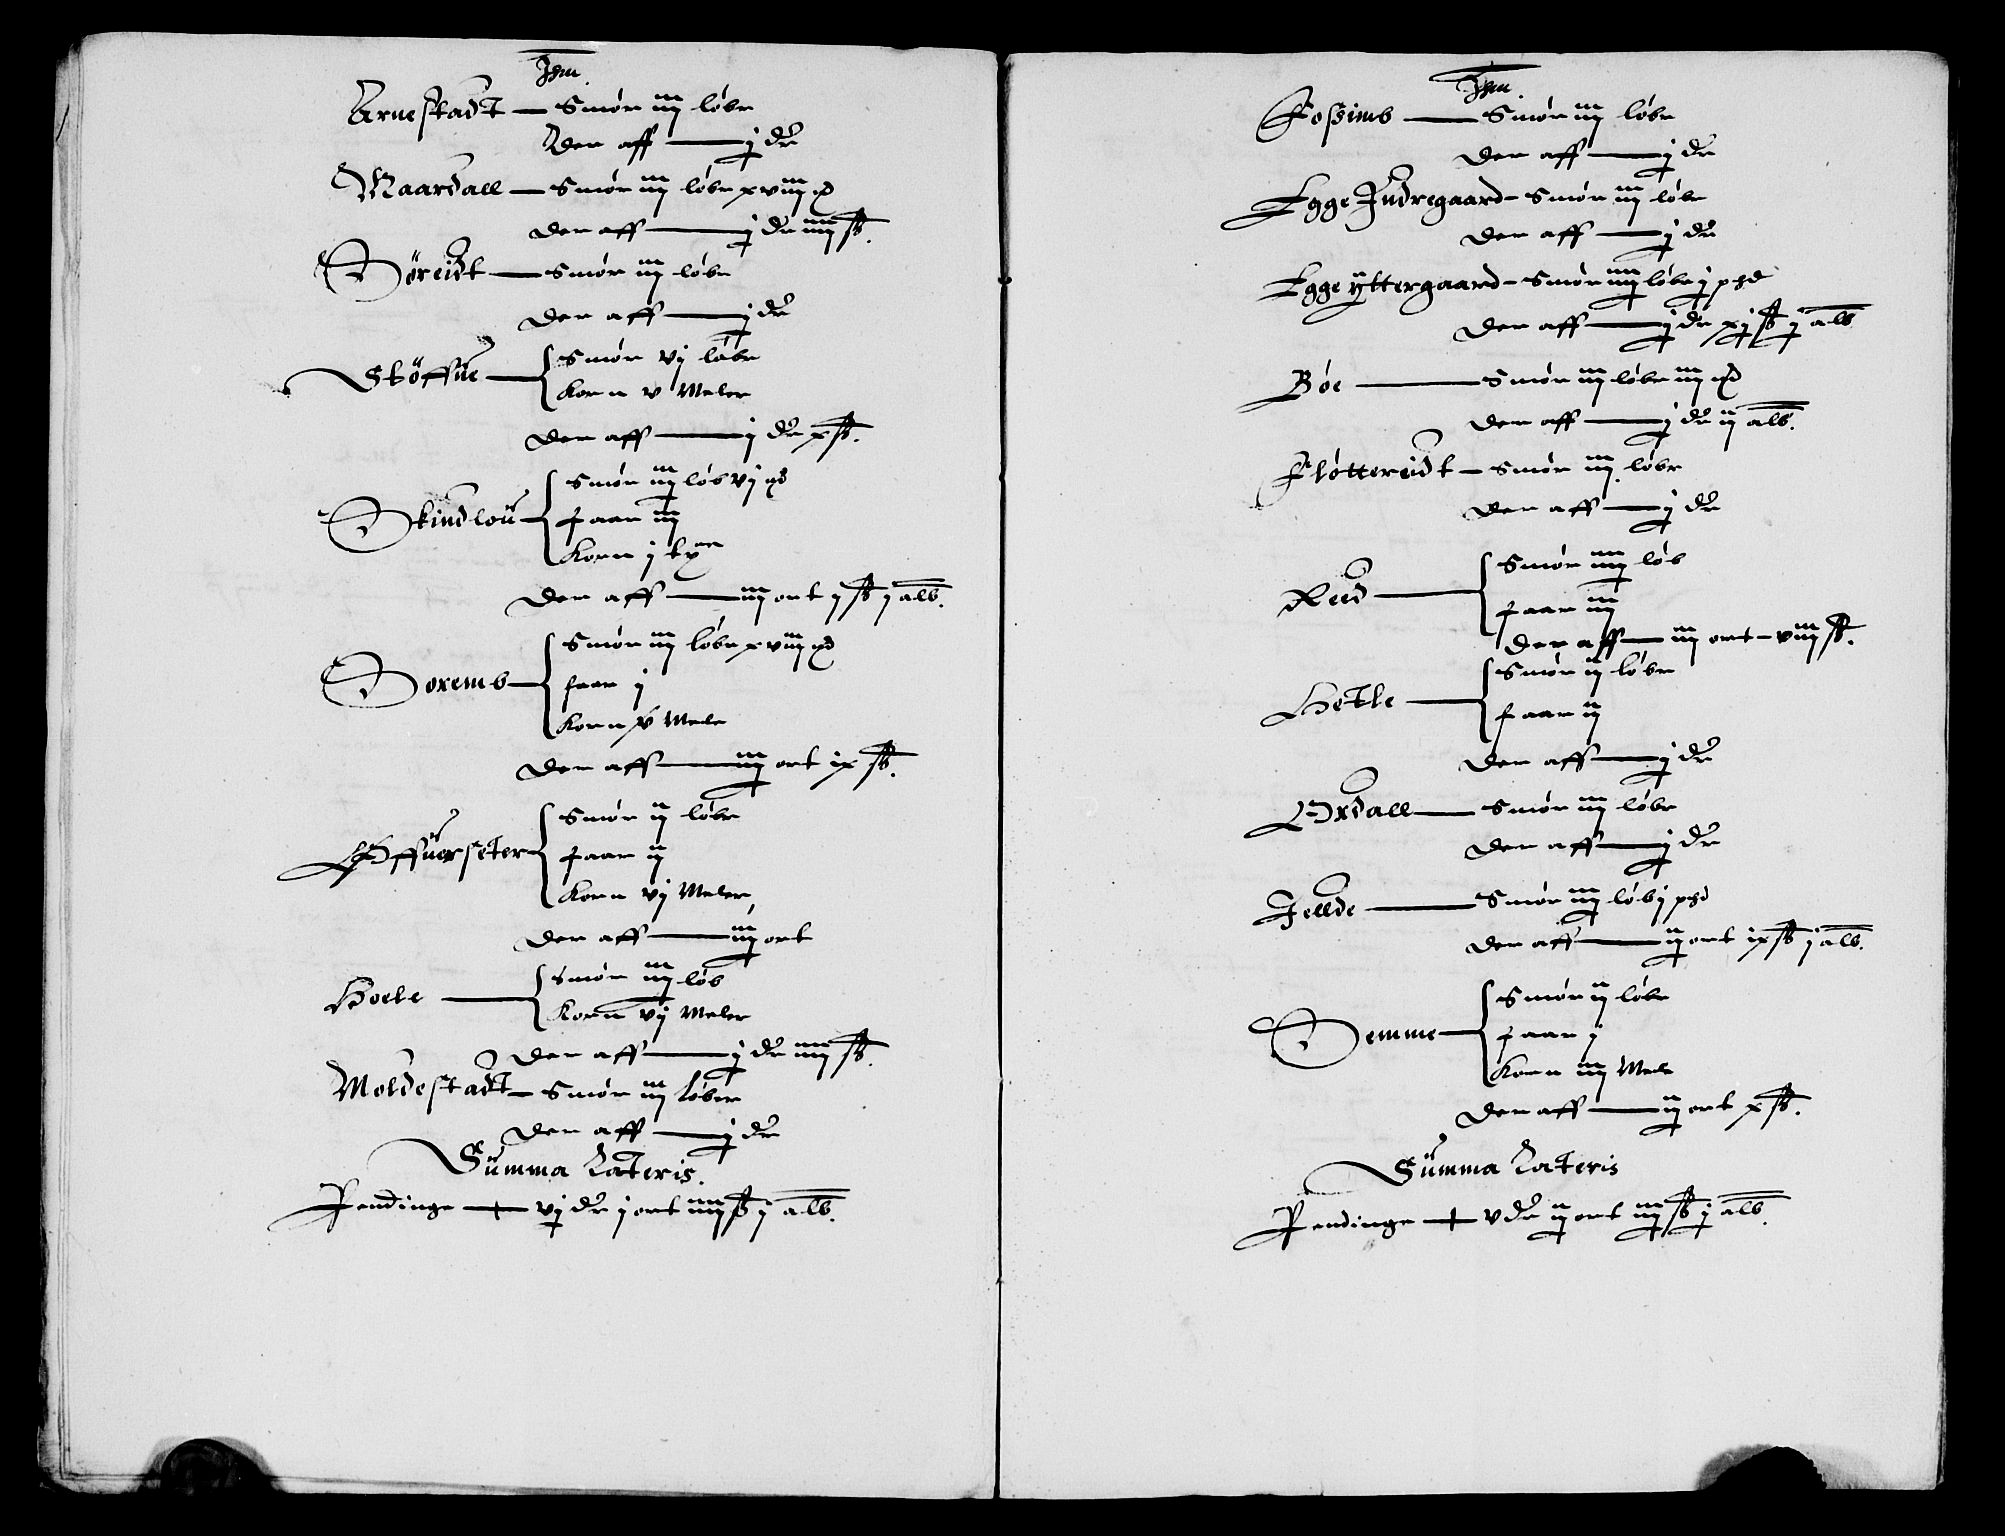 Jhm.
Arnestadt — Smør iij løbe
Der aff — j dr
Maardall — Smør iij løbe xviij
Der aff — j dr iiij ß.
Söreidt — Smør iij løbe
Der aff — j dr
Stöffue — Smør vj løbe
Korn v Meler
Der aff — j dr x ß.
Skindlou — Smør iij løb vj
Faar iij
Korn j
Der aff — iij ort j ß j alb.
Soremb — Smør iij løbe xviij
faar j
Korn v Mele
Der aff — iij ort ix ß.
Öffuerseter — Smør ij løbe
Faar ij
Korn vj Meler,
Der aff — iij ort
Hoele — Smør iij løb
Korn vj Meler
Der aff — j dr iiij ß.
Moldestadt — Smør iij løber
Der aff — j dr
Summa Lateris.
Pendinge — vj dr j ort iiij ß j alb.
Jhm.
Foßimb — Smør iij løbe
Der aff — j dr
Egge Indregaard — Smør iij løbe
Der aff — j dr
Egge yttergaard — Smør iiij løbe j
Der aff — j dr xj ß j alb
Böe — Smør iij løbe iij
Der aff — j dr ij alb.
Fløttereidt — Smør iij løbe
Der aff — j dr
Reed — Smør iiij løb
Faar iij
Der aff — iij ort – viij ß.
Hetle — Smør ij løbe
Faar ij
Der aff — j dr
Ordall — Smør iij løbe
Der aff — j dr
Jellde — Smør iij løb j
Der aff — ij ort ix ß j alb.
Semme — Smør ij løbe
Faar j
Korn iij Mele
Der aff — ij ort x ß.
Summa Lateris
Pendinge — v dr ij ort iij ß j alb.